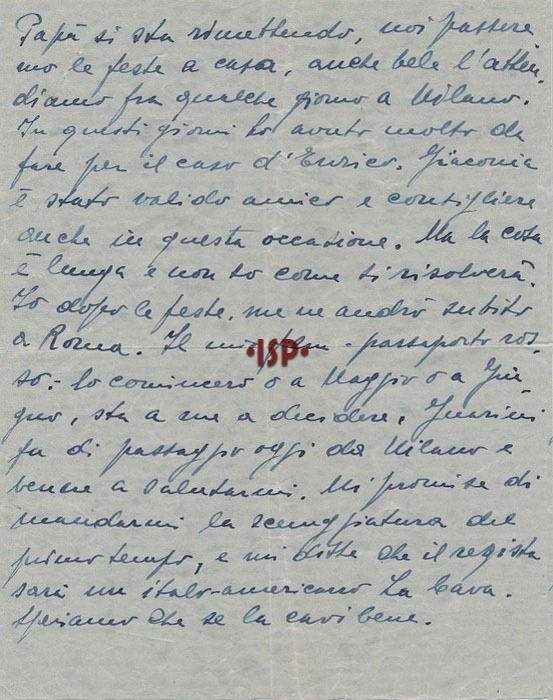 Papà si sta rimettendo, noi passere
mo le feste a casa, anche bele l'atten
diamo fra qualche giorno a Milano.
In questi giorni ho avuto molto da
fare per il caso d'Enrico. Giaconia
è stato valido amico e consigliere
anche in questa occasione. Ma la cosa
è lunga e non so come si risolverà.
Io dopo le feste, me ne andrò subito
a Roma. Il mio - passaporto ros-
•ISP•
so:- lo comincerò o a Maggio o a Giu
gno, sta a me a decidere. Guarini
fu di passaggio oggi da Milano e
venne a salutarmi. Mi promise di
mandarmi la sceneggiatura del
primo tempo, e mi disse che il regista
sarà un italo-americano La Cava.
Speriamo che se la cavi bene.